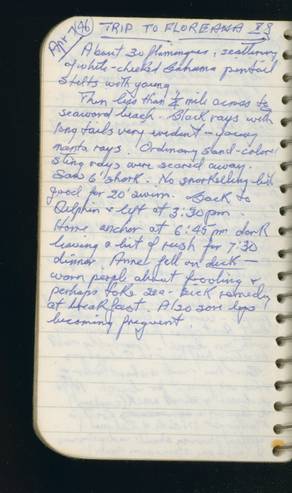 Apr 2/86 TRIP TO FLOREANA 88
About 30 flamingoes, scattering
of white-cheeked Bahama pintail
stilts with young
Then less than ¼ mile across to
seaward beach. Black rays with
long tails very evident - young
manta rays. Ordinary sand-color
sting rays were scared away.
Saw 6' shark. No snorkelling but
good for 20' swim. Back to
Delphin & left at 3:30 pm.
Home anchor at 6:45 pm dark
leaving a bit of rush for 7:30
dinner. Anne fell on deck —
warn people about footing &
perhaps take sea-sick remedy
at breakfast. Also sore legs
becoming frequent.